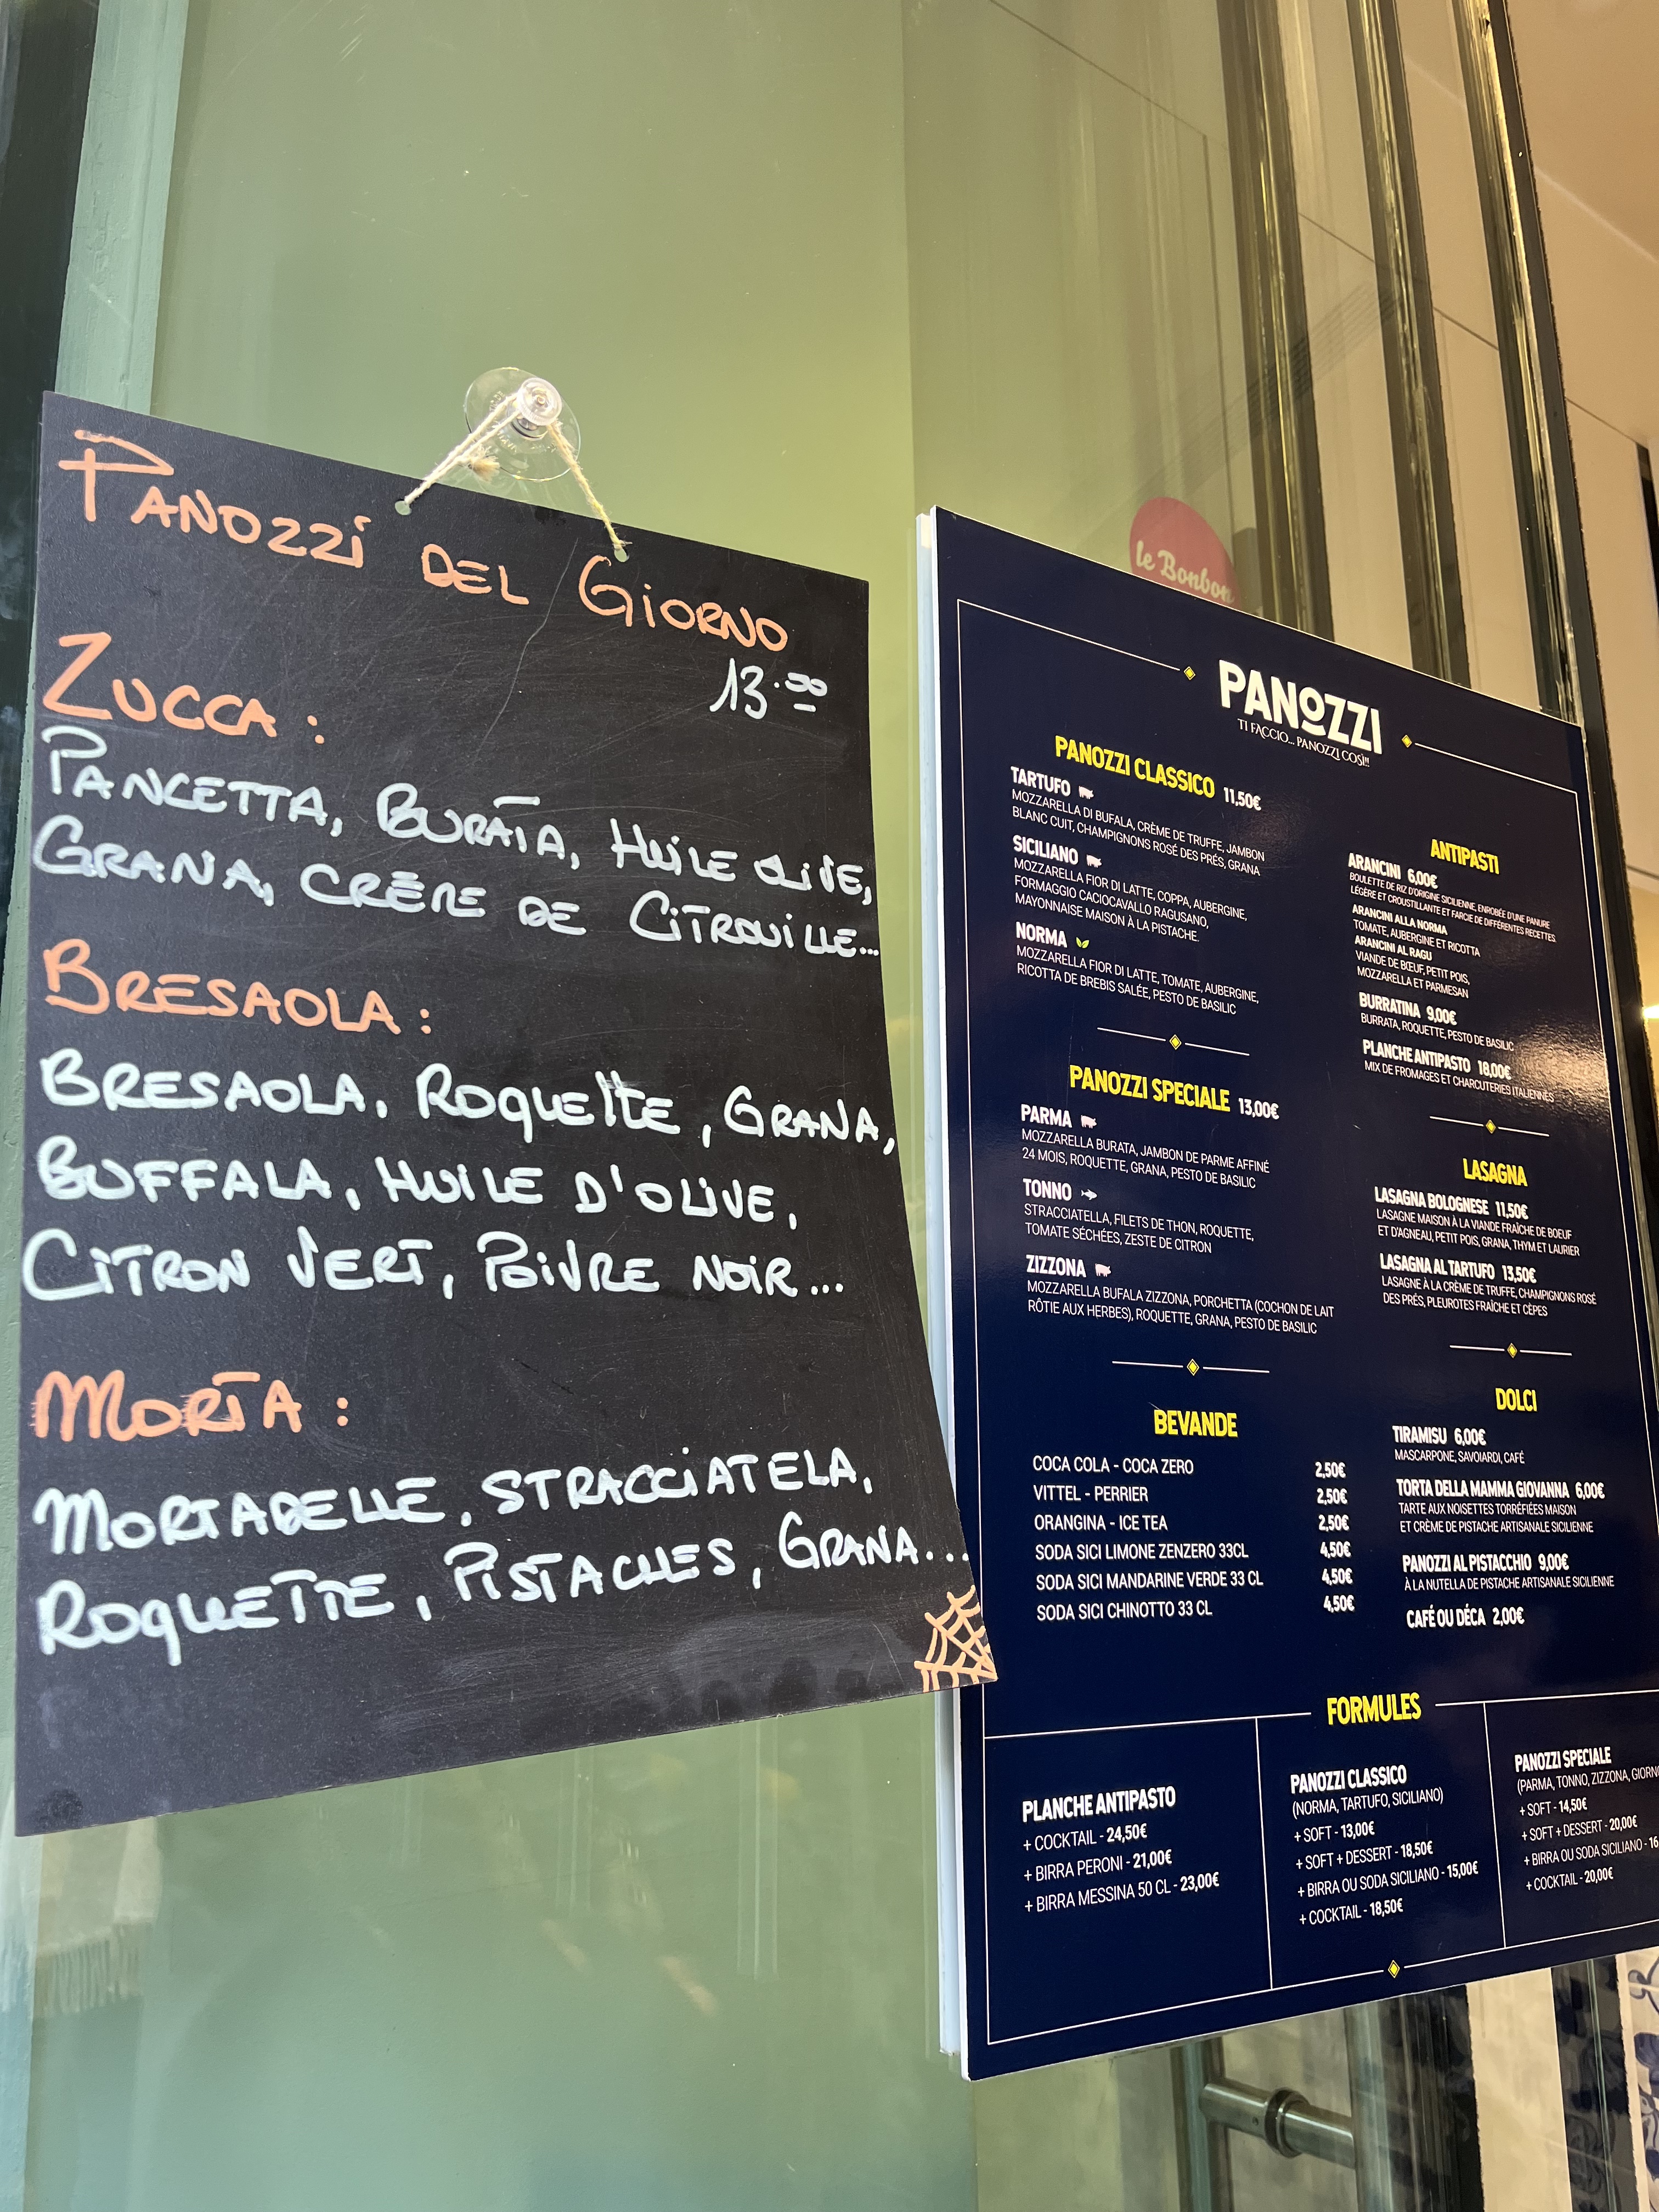 PANOZZI DEL GIORNO
13.00
ZUCCA :
PANCETTA, BURATA, HUILE OLIVE,
GRANA, CRÈME DE CITROUILLE...
BRESAOLA :
BRESAOLA, ROQUETTE, GRANA,
BUFFALA, HUILE D'OLIVE,
CITRON VERT, POIVRE NOIR...
MORTA :
MORTADELLE, STRACCIATELA,
ROQUETTE, PISTACHES, GRANA...
le Bonbon
PANOZZI
TI FACCIO... PANOZZI COSÌ!!
PANOZZI CLASSICO 11,50€
TARTUFO
MOZZARELLA DI BUFALA, CRÈME DE TRUFFE, JAMBON
BLANC CUIT, CHAMPIGNONS ROSÉ DES PRÉS, GRANA
SICILIANO
MOZZARELLA FIOR DI LATTE, COPPA, AUBERGINE,
FORMAGGIO CACIOCAVALLO RAGUSANO,
MAYONNAISE MAISON À LA PISTACHE.
NORMA
MOZZARELLA FIOR DI LATTE, TOMATE, AUBERGINE,
RICOTTA DE BREBIS SALÉE, PESTO DE BASILIC
PANOZZI SPECIALE 13,00€
PARMA
MOZZARELLA BURATA, JAMBON DE PARME AFFINÉ
24 MOIS, ROQUETTE, GRANA, PESTO DE BASILIC
TONNO
STRACCIATELLA, FILETS DE THON, ROQUETTE,
TOMATE SÉCHÉES, ZESTE DE CITRON
ZIZZONA
MOZZARELLA BUFALA ZIZZONA, PORCHETTA (COCHON DE LAIT
RÔTIE AUX HERBES), ROQUETTE, GRANA, PESTO DE BASILIC
BEVANDE
COCA COLA - COCA ZERO 2,50€
VITTEL - PERRIER 2,50€
ORANGINA - ICE TEA 2,50€
SODA SICI LIMONE ZENZERO 33CL 4,50€
SODA SICI MANDARINE VERDE 33 CL 4,50€
SODA SICI CHINOTTO 33 CL 4,50€
ANTIPASTI
ARANCINI 6,00€
BOULETTE DE RIZ D'ORIGINE SICILIENNE, ENROBÉE D'UNE PANURE
LÉGÈRE ET CROUSTILLANTE ET FARCIE DE DIFFÉRENTES RECETTES.
ARANCINI ALLA NORMA
TOMATE, AUBERGINE ET RICOTTA
ARANCINI AL RAGU
VIANDE DE BŒUF, PETIT POIS,
MOZZARELLA ET PARMESAN
BURRATINA 9,00€
BURRATA, ROQUETTE, PESTO DE BASILIC
PLANCHE ANTIPASTO 18,00€
MIX DE FROMAGES ET CHARCUTERIES ITALIENNES
LASAGNA
LASAGNA BOLOGNESE 11,50€
LASAGNE MAISON À LA VIANDE FRAÎCHE DE BOEUF
ET D'AGNEAU, PETIT POIS, GRANA, THYM ET LAURIER
LASAGNA AL TARTUFO 13,50€
LASAGNE À LA CRÈME DE TRUFFE, CHAMPIGNONS ROSÉ
DES PRÉS, PLEUROTES FRAÎCHE ET CÈPES
DOLCI
TIRAMISU 6,00€
MASCARPONE, SAVOIARDI, CAFÉ
TORTA DELLA MAMMA GIOVANNA 6,00€
TARTE AUX NOISETTES TORRÉFIÉES MAISON
ET CRÈME DE PISTACHE ARTISANALE SICILIENNE
PANOZZI AL PISTACCHIO 9,00€
À LA NUTELLA DE PISTACHE ARTISANALE SICILIENNE
CAFÉ OU DÉCA 2,00€
FORMULES
PLANCHE ANTIPASTO
+ COCKTAIL - 24,50€
+ BIRRA PERONI - 21,00€
+ BIRRA MESSINA 50 CL - 23,00€
PANOZZI CLASSICO
(NORMA, TARTUFO, SICILIANO)
+ SOFT - 13,00€
+ SOFT + DESSERT - 18,50€
+ BIRRA OU SODA SICILIANO - 15,00€
+ COCKTAIL - 18,50€
PANOZZI SPECIALE
(PARMA, TONNO, ZIZZONA, GIORN
+ SOFT - 14,50€
+ SOFT + DESSERT - 20,00€
+ BIRRA OU SODA SICILIANO - 16
+ COCKTAIL - 20,00€